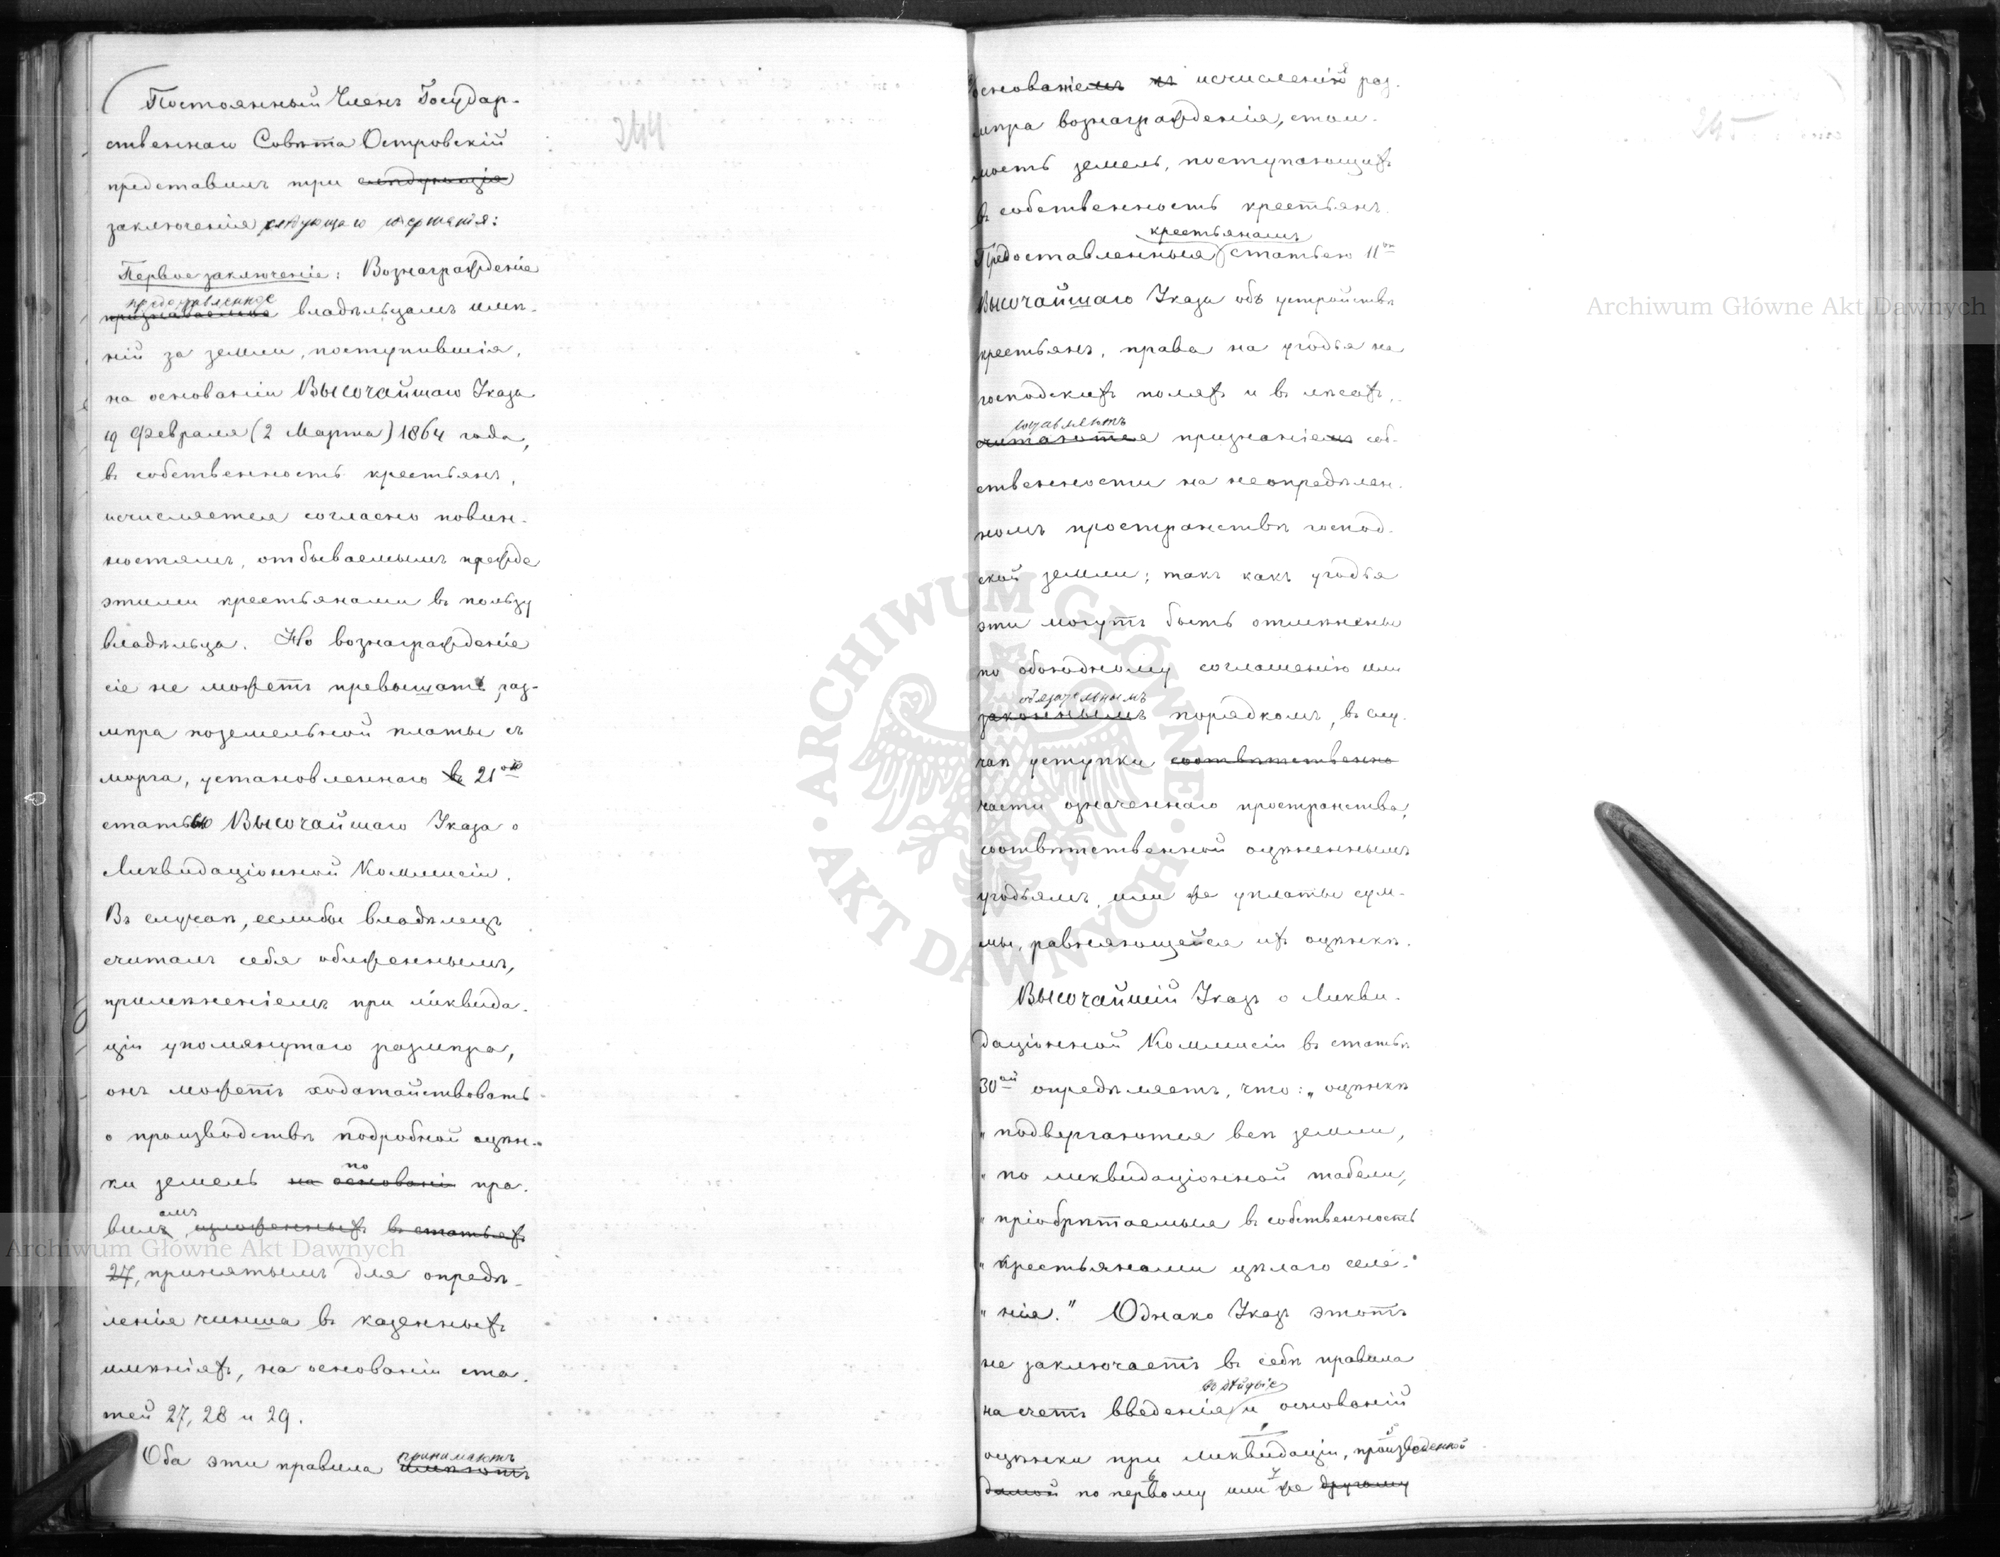 Постоянный Членъ Государ-
ственнаго Совѣта Островскій
представилъ три слѣдующія
заключенія слѣдующаго содержанія:
Первое заключеніе: Вознагражденіе
предоставленное
признаваемое владѣльцамъ имѣ-
ній за земли, поступившія,
на основаніи Высочайшаго Указа
19 Февраля (2 Марта) 1864 года,
въ собственность крестьянъ,
исчисляется согласно повин-
ностямъ, отбываемымъ прежде
этими крестьянами въ пользу
владѣльца. Но вознагражденіе
сіе не можетъ превышать раз-
мѣра поземельной платы съ
морга, установленнаго въ 21ою
статьею Высочайшаго Указа о
Ликвидаціонной Коммисіи.
Въ случаѣ, еслибы владѣлецъ
считалъ себя обиженнымъ,
примѣненіемъ при ликвида-
ціи упомянутаго размѣра,
онъ можетъ ходатайствовать
о производствѣ подробной оцѣн-
по
ки земель на основаніи пра-
амъ
вилъ, изложенныхъ въ статьяхъ
27, принятымъ для опредѣ-
ленія чинша въ казенныхъ
имѣніяхъ, на основаніи ста-
тей 27, 28 и 29.
принимаютъ
Оба эти правила имѣютъ
244
основаніемъ къ исчисленію раз-
мѣра вознагражденія, стои-
мость земель, поступающихъ
въ собственность крестьянъ.
крестьянамъ
Предоставленныя статьею 11ою
Высочайшаго Указа объ устройствѣ
крестьянъ, права на угодья на
господскихъ поляхъ и въ лѣсахъ,
составляютъ
считаются признаніемъ соб-
ственности на неопредѣлен-
номъ пространствѣ господ-
ской земли; такъ какъ угодья
эти могутъ быть отмѣнены
по обоюдному соглашенію или
обязательнымъ
законнымъ порядкомъ, въ слу-
чаѣ уступки соотвѣтственно
части означеннаго пространства,
соотвѣтственной оцѣненнымъ
угодьямъ, или же уплаты сум-
мы, равняющейся ихъ оцѣнкѣ.
Высочайшій Указъ о Ликви-
даціонной Коммисіи въ статьѣ
30ой опредѣляетъ, что: „оцѣнкѣ
„подвергаются всѣ земли,
„по ликвидаціонной табели,
„пріобрѣтаемыя въ собственность
„крестьянами цѣлаго селе-
„нія." Однако Указъ этотъ
не заключаетъ въ себѣ правила
въ дѣйствіе
на счетъ введенія и основаній
оцѣнки при ликвидаціи, произведенной
по первому или же другому
245
Archiwum Główne Akt Dawnych
Archiwum Główne Akt Dawnych
ARCHIWUM GŁÓWNE · AKT DAWNYCH ·